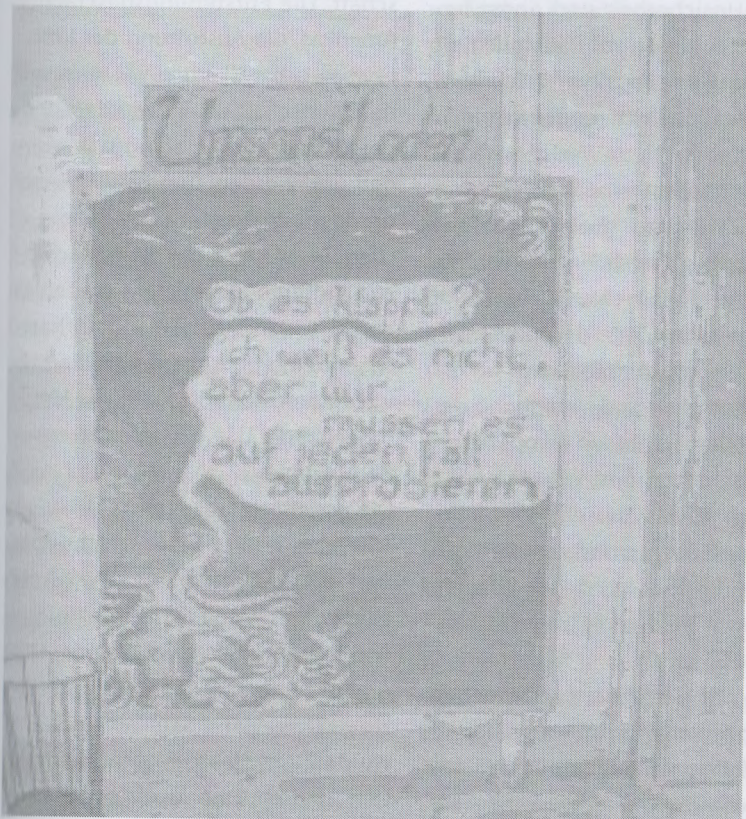 Umsonstladen
Ob es klappt ?
ich weiß es nicht,
aber wir
müssen es
auf jeden Fall
ausprobieren,